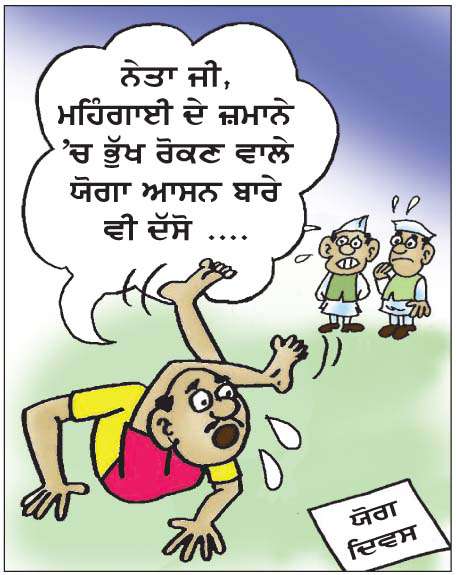 ਨੇਤਾ ਜੀ,
ਮਹਿੰਗਾਈ ਦੇ ਜ਼ਮਾਨੇ
’ਚ ਭੁੱਖ ਰੋਕਣ ਵਾਲੇ
ਯੋਗਾ ਆਸਨ ਬਾਰੇ
ਵੀ ਦੱਸੋ ....
ਯੋਗ
ਦਿਵਸ